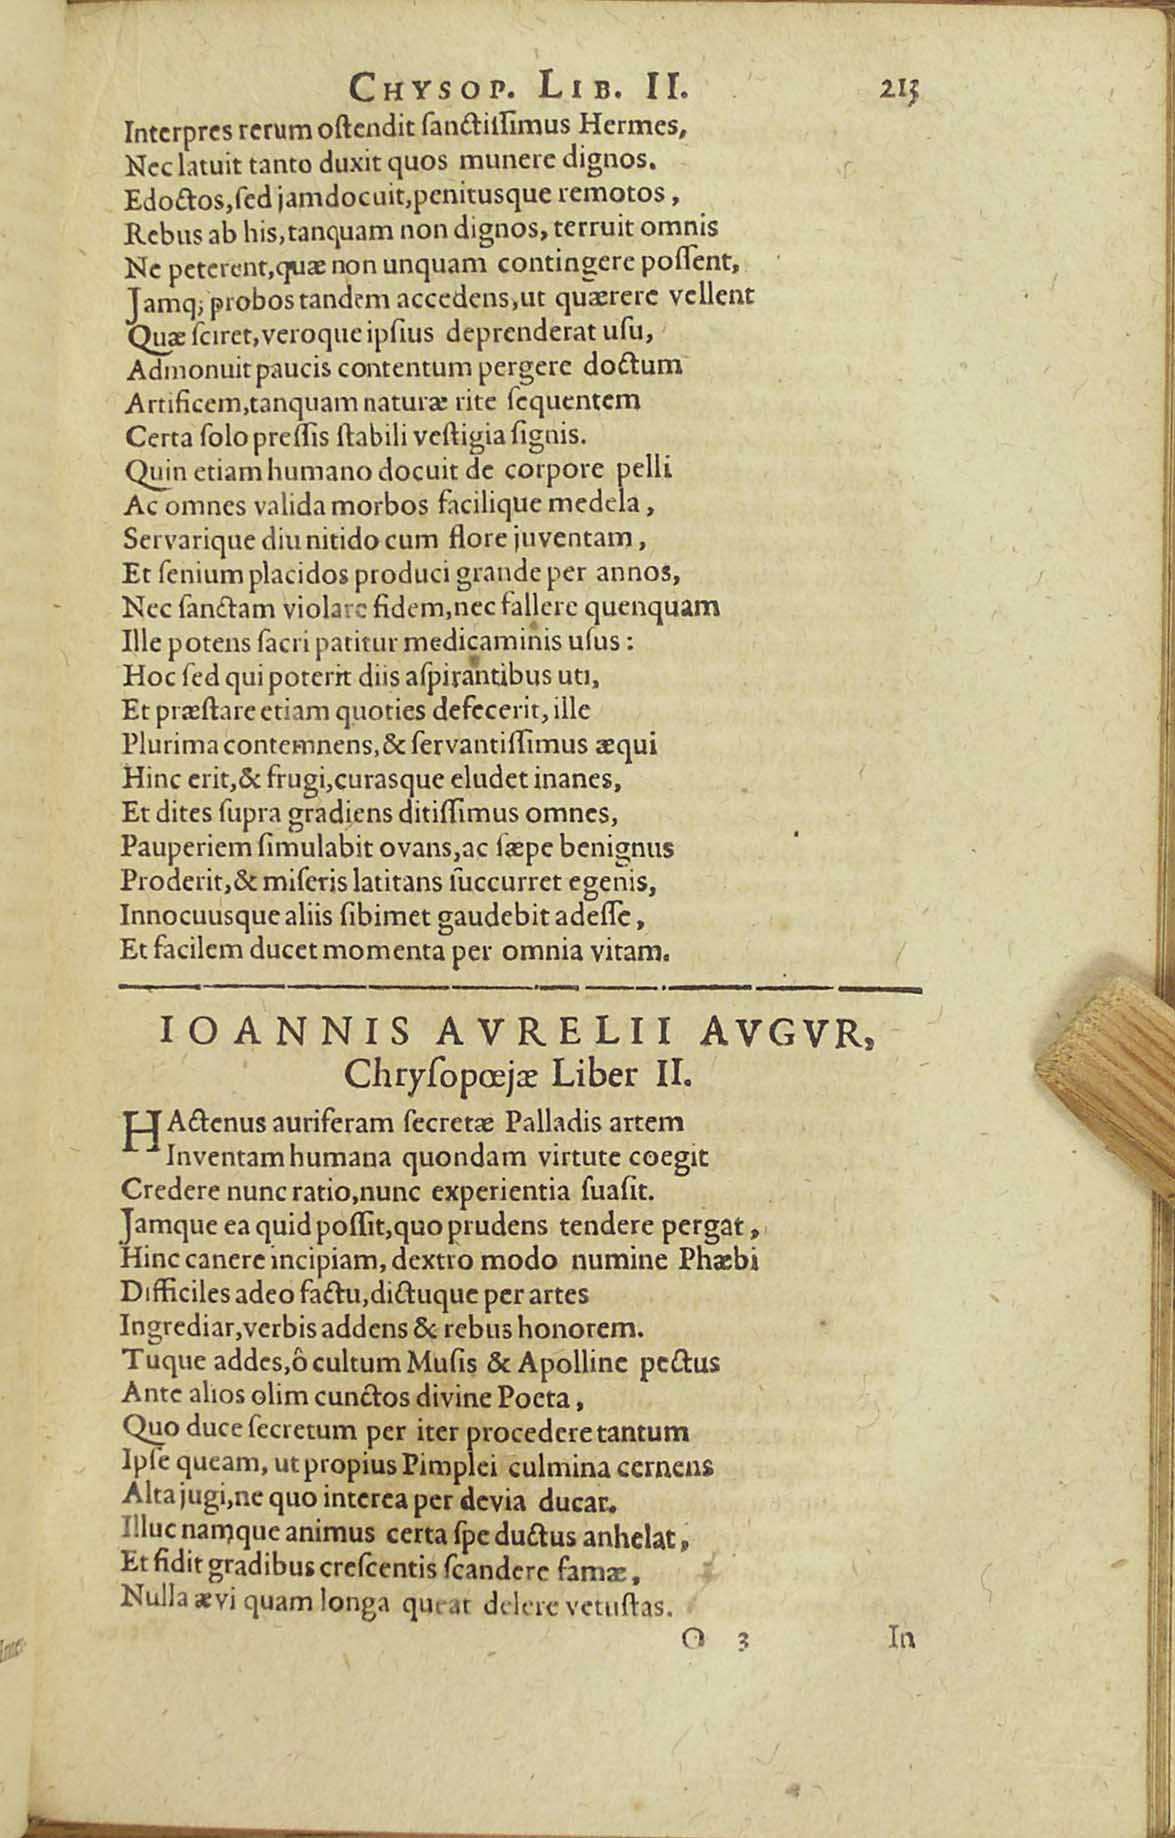 CHYSOP. LIB. II. 213
Interpres rerum ostendit sanctissimus Hermes,
Nec latuit tanto duxit quos munere dignos.
Edoctos, sed jam docuit, penitusque remotos,
Rebus ab his, tanquam non dignos, terruit omnis
Ne peterent, quæ non unquam contingere possent,
Jamq; probos tandem accedens, ut quærere vellent
Quæ sciret, veroque ipsius deprenderat usu,
Admonuit paucis contentum pergere doctum
Artificem, tanquam naturæ rite sequentem
Certa solo pressis stabili vestigia signis.
Quin etiam humano docuit de corpore pelli
Ac omnes valida morbos facilique medela,
Servarique diu nitido cum flore juventam,
Et senium placidos produci grande per annos,
Nec sanctam violare fidem, nec fallere quenquam
Ille potens sacri patitur medicaminis usus:
Hoc sed qui poterit diis aspirantibus uti,
Et præstare etiam quoties defecerit, ille
Plurima contemnens, & servantissimus æqui
Hinc erit, & frugi, curasque eludet inanes,
Et dites supra gradiens ditissimus omnes,
Pauperiem simulabit ovans, ac sæpe benignus
Proderit, & miseris latitans succurret egenis,
Innocuusque aliis sibimet gaudebit adesse,
Et facilem ducet momenta per omnia vitam.
IOANNIS AVRELII AVGVR,
Chrysopœjæ Liber II.
HActenus auriferam secretæ Palladis artem
Inventam humana quondam virtute coegit
Credere nunc ratio, nunc experientia suasit.
Jamque ea quid possit, quo prudens tendere pergat,
Hinc canere incipiam, dextro modo numine Phæbi
Difficiles adeo factu, dictuque per artes
Ingrediar, verbis addens & rebus honorem.
Tuque addes, ô cultum Musis & Apolline pectus
Ante alios olim cunctos divine Poeta,
Quo duce secretum per iter procedere tantum
Ipse queam, ut propius Pimplei culmina cernens
Alta jugi, ne quo interea per devia ducar.
Illuc namque animus certa spe ductus anhelat,
Et fidit gradibus crescentis scandere famæ,
Nulla ævi quam longa queat delere vetustas.
O 3 In